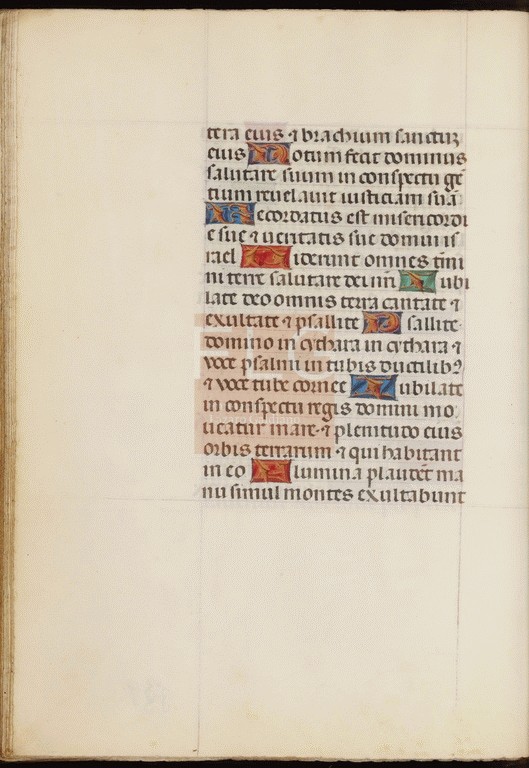 tera eius ⁊ brachium sanctuꝫ
eius Notum fecit dominus
salutare suum in conspectu gē
tium reuelauit iusticiam suā
Recordatus est misericordi
e sue ⁊ ueritatis sue domui is
rael Viderunt omnes t̄mi
ni terre salutare dei nr̄i Iubi
late deo omnis terra cantate ⁊
exultate ⁊ psallite Psallite
domino in cythara in cythara ⁊
voce psalmi in tubis ductilibꝯ
⁊ voce tube cornee Iubilate
in conspectu regis domini mo
ueatur mare ⁊ plenitudo eius
orbis terrarum ⁊ qui habitant
in eo Flumina plaudēt ma
nu simul montes exultabunt